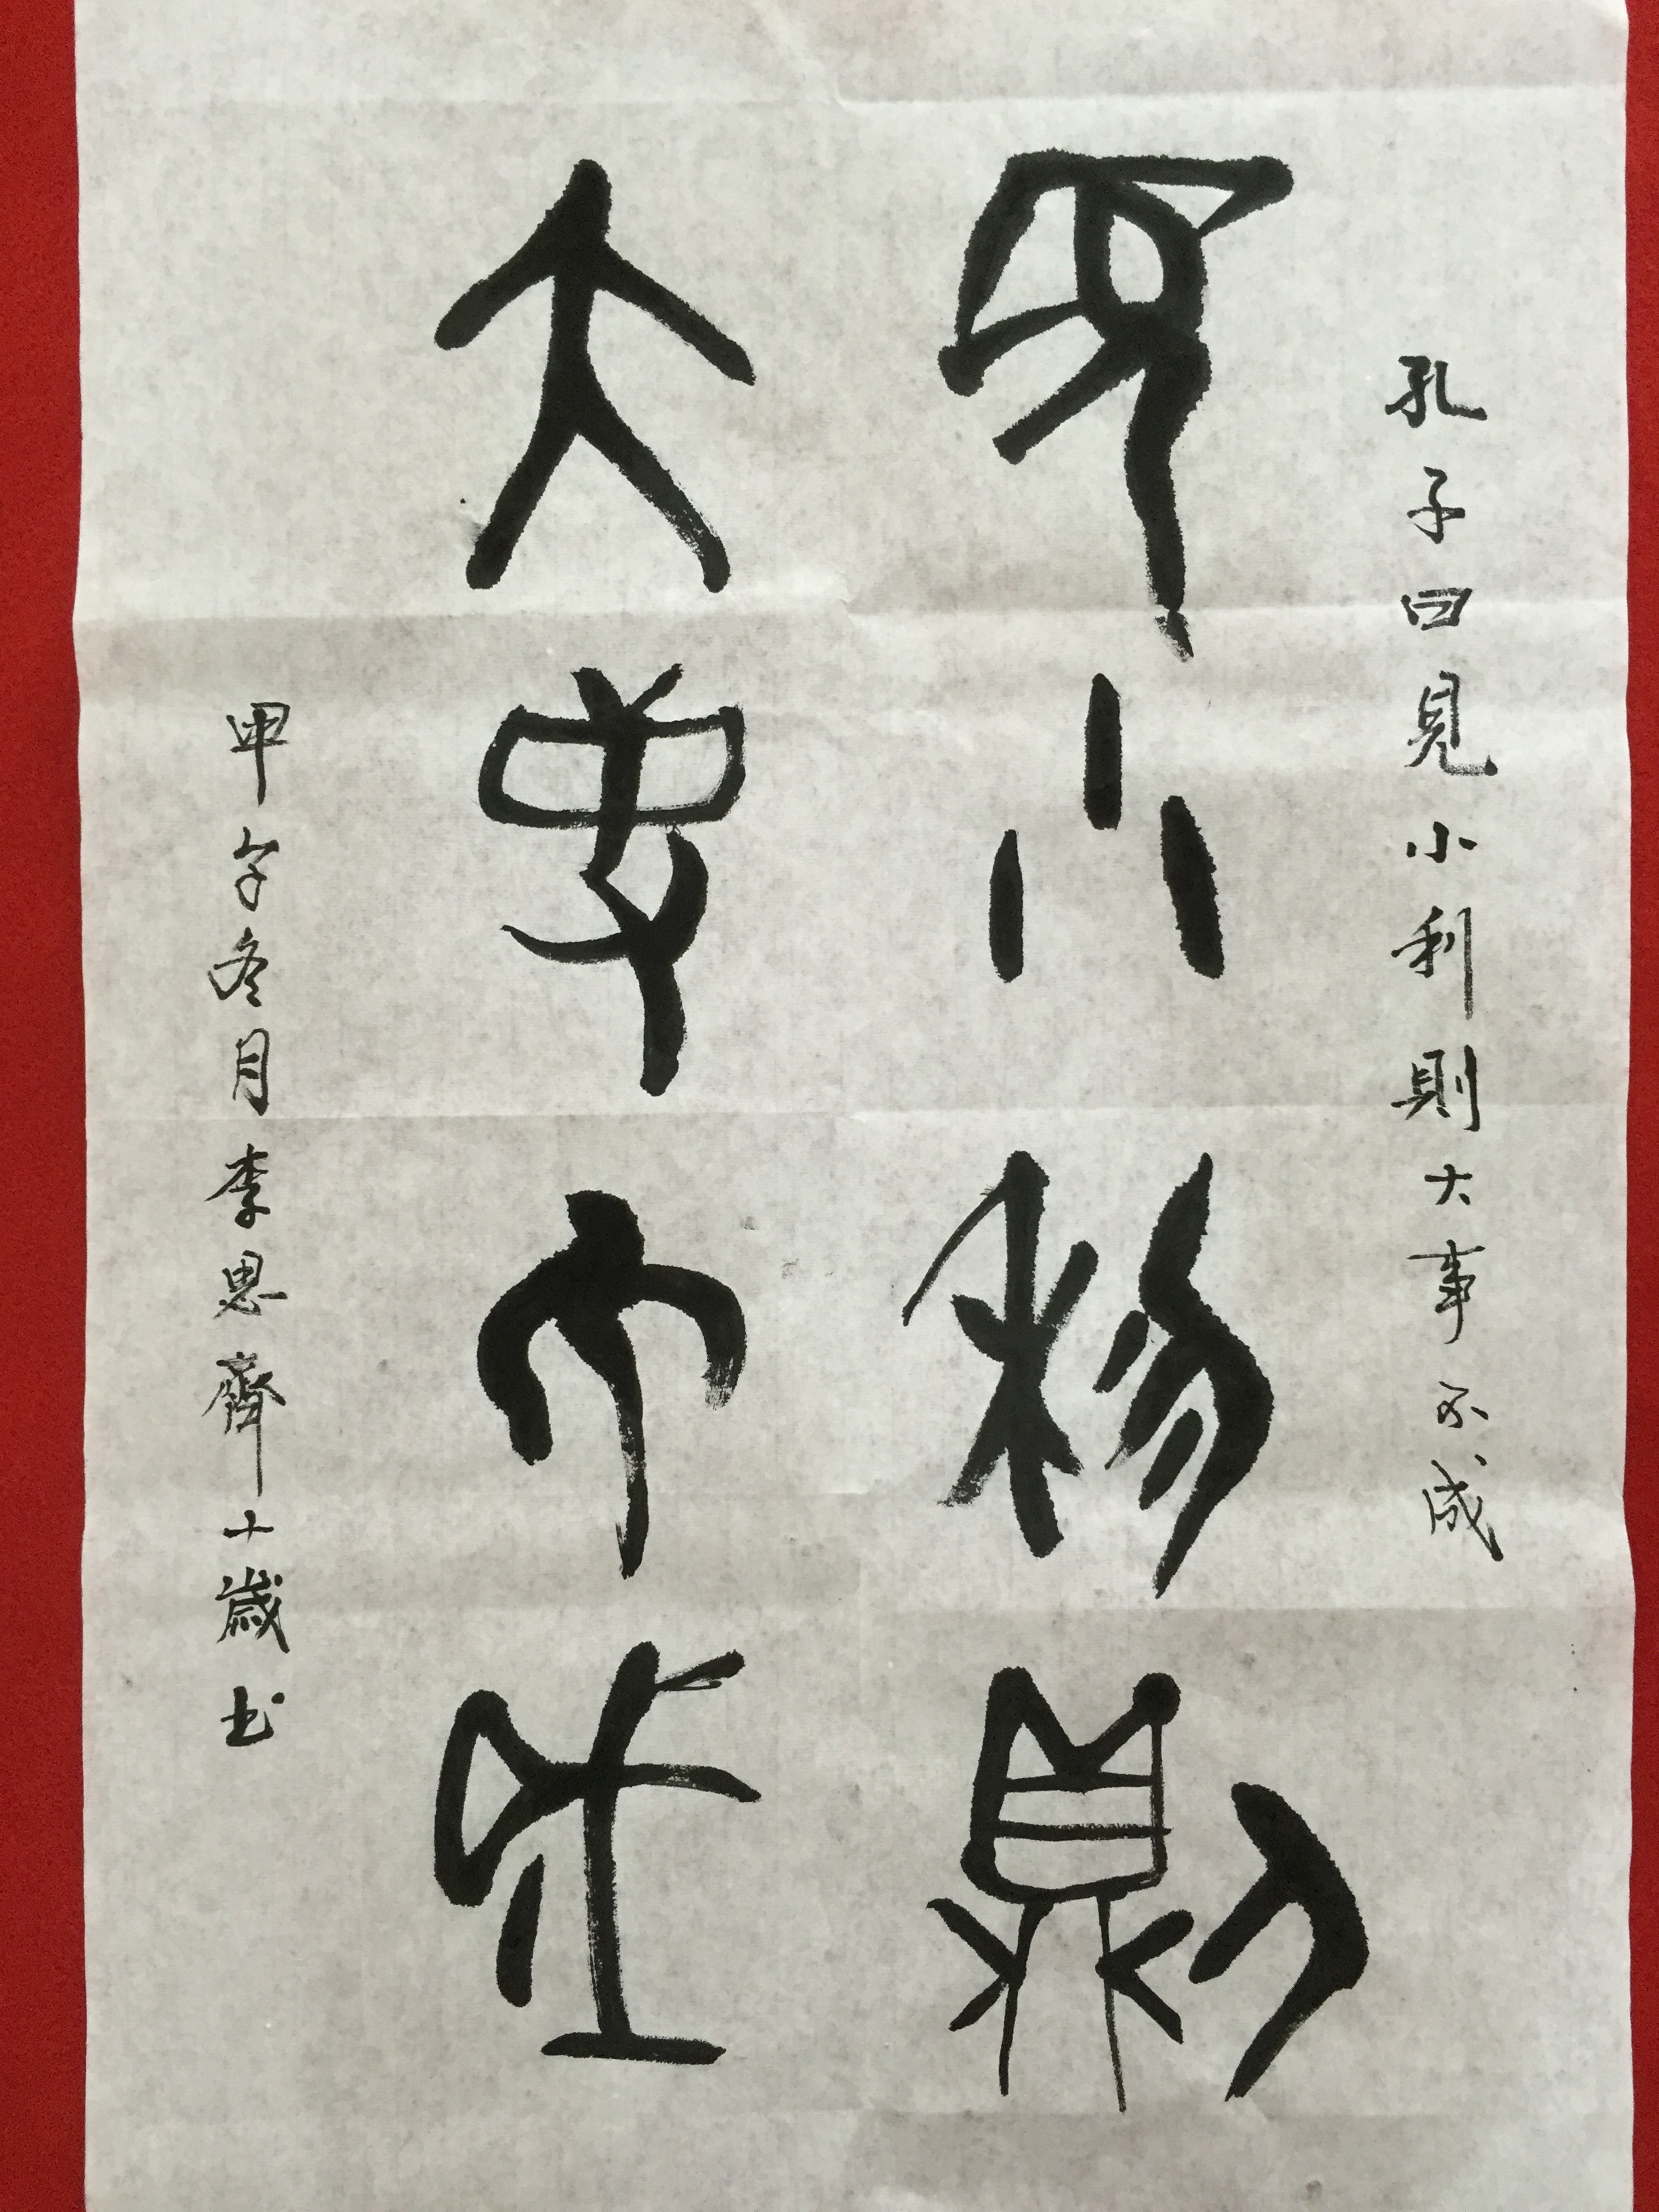 孔子曰見小利則大事不成
見小利則
大事不成
甲午冬月李思齊十歲书